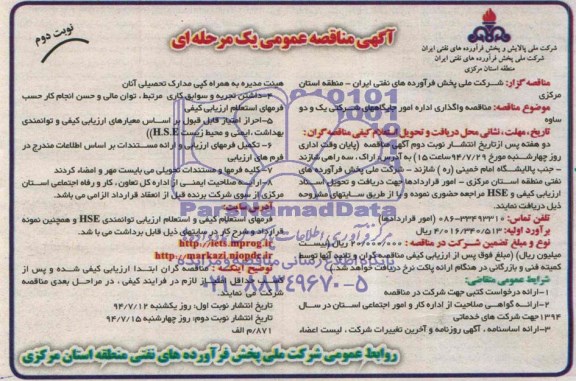 نوبت دوم
آگهی مناقصه عمومی یک مرحله ای
شرکت ملی پالایش و پخش فرآورده های نفتی ایران
شرکت ملی پخش فرآورده های نفتی ایران
منطقه استان مرکزی
مناقصه گزار: شرکت ملی پخش فرآورده های نفتی ایران - منطقه استان
مرکزی
موضوع مناقصه: مناقصه واگذاری اداره امور جایگاههای شرکتی یک و دو
ساوه
تاریخ، مهلت، نشانی محل دریافت و تحویل استعلام کیفی مناقصه گران:
دو هفته پس ازتاریخ انتشار نوبت دوم آگهی مناقصه (پایان وقت اداری
روز چهارشنبه مورخ ۹۴/۷/۲۹ ساعت ۱۵) به آدرس: اراک، سه راهی شازند
- جنب پالایشگاه امام خمینی (ره) شازند - شرکت ملی پخش فرآورده های
نفتی منطقه استان مرکزی - امور قراردادها جهت دریافت و تحویل اسناد
ارزیابی کیفی و HSE مراجعه حضوری نموده و یا از طریق سایتهای مشروحه
ذیل دریافت نمایند.
تلفن تماس: ۳۳۴۹۳۳۱۰-۰۸۶ (امور قراردادها)
برآورد اولیه: ۴/۰۱۶/۳۴۰/۵۱۳ ریال
نوع و مبلغ تضمین شرکت در مناقصه: ۲۰/۰۰۰/۰۰۰ ریال(بیست
میلیون ریال) (مبلغ فوق پس از ارزیابی کیفی مناقصه گران و تائید آنها توسط
کمیته فنی و بازرگانی در هنگام ارائه پاکت نرخ دریافت خواهد شد.)
شرایط عمومی متقاضی:
۱-ارائه درخواست کتبی جهت شرکت در مناقصه
۲-ارائه گواهی صلاحیت از اداره کار و امور اجتماعی استان در سال
۱۳۹۴ جهت شرکت های خدماتی
۳-ارائه اساسنامه، آگهی روزنامه و آخرین تغییرات شرکت، لیست اعضاء
هیئت مدیره به همراه کپی مدارک تحصیلی آنان
۴-داشتن تجربه و سوابق کاری مرتبط، توان مالی و حسن انجام کار حسب
فرمهای استعلام ارزیابی کیفی
۵-احراز امتیاز قابل قبول بر اساس معیارهای ارزیابی کیفی و توانمندی
بهداشت، ایمنی و محیط زیست H.S.E))
۶- تکمیل فرمهای ارزیابی و ارائه مستندات بر اساس اطلاعات مندرج در
فرم های ارزیابی
۷- کلیه فرمها و مستندات تحویلی می بایست مهر و امضاء گردند
۸-ارائه صلاحیت ایمنی از اداره کل تعاون، کار و رفاه اجتماعی استان
مرکزی از سوی شرکت برنده قبل از انعقاد قرارداد الزامی می باشد.
آدرس سایت:
فرمهای استعلام کیفی و استعلام ارزیابی توانمندی HSE و همچنین نمونه
قرارداد و شرح کار در سایتهای ذیل قابل برداشت می با شد.
http://iets.mporg.ir
http://markazi.niopdc.ir
توضیح اینکه: مناقصه گران ابتدا ارزیابی کیفی شده و پس از
حد حداقل امتیاز لازم در فرایند کیفی، در مراحل بعدی مناقصه
شرکت می نمایند.
تاریخ انتشار نوبت اول: روز یکشنبه ۹۴/۷/۱۲
تاریخ انتشار نوبت دوم: روز چهارشنبه ۹۴/۷/۱۵
۸۷۱/م الف
روابط عمومی شرکت ملی پخش فرآورده های نفتی منطقه استان مرکزی
ParsNamadData
پایگاه اطلاع رسانی مناقصه و مزایده
۰۲۱-۸۸۳۴۹۶۷۰-۵